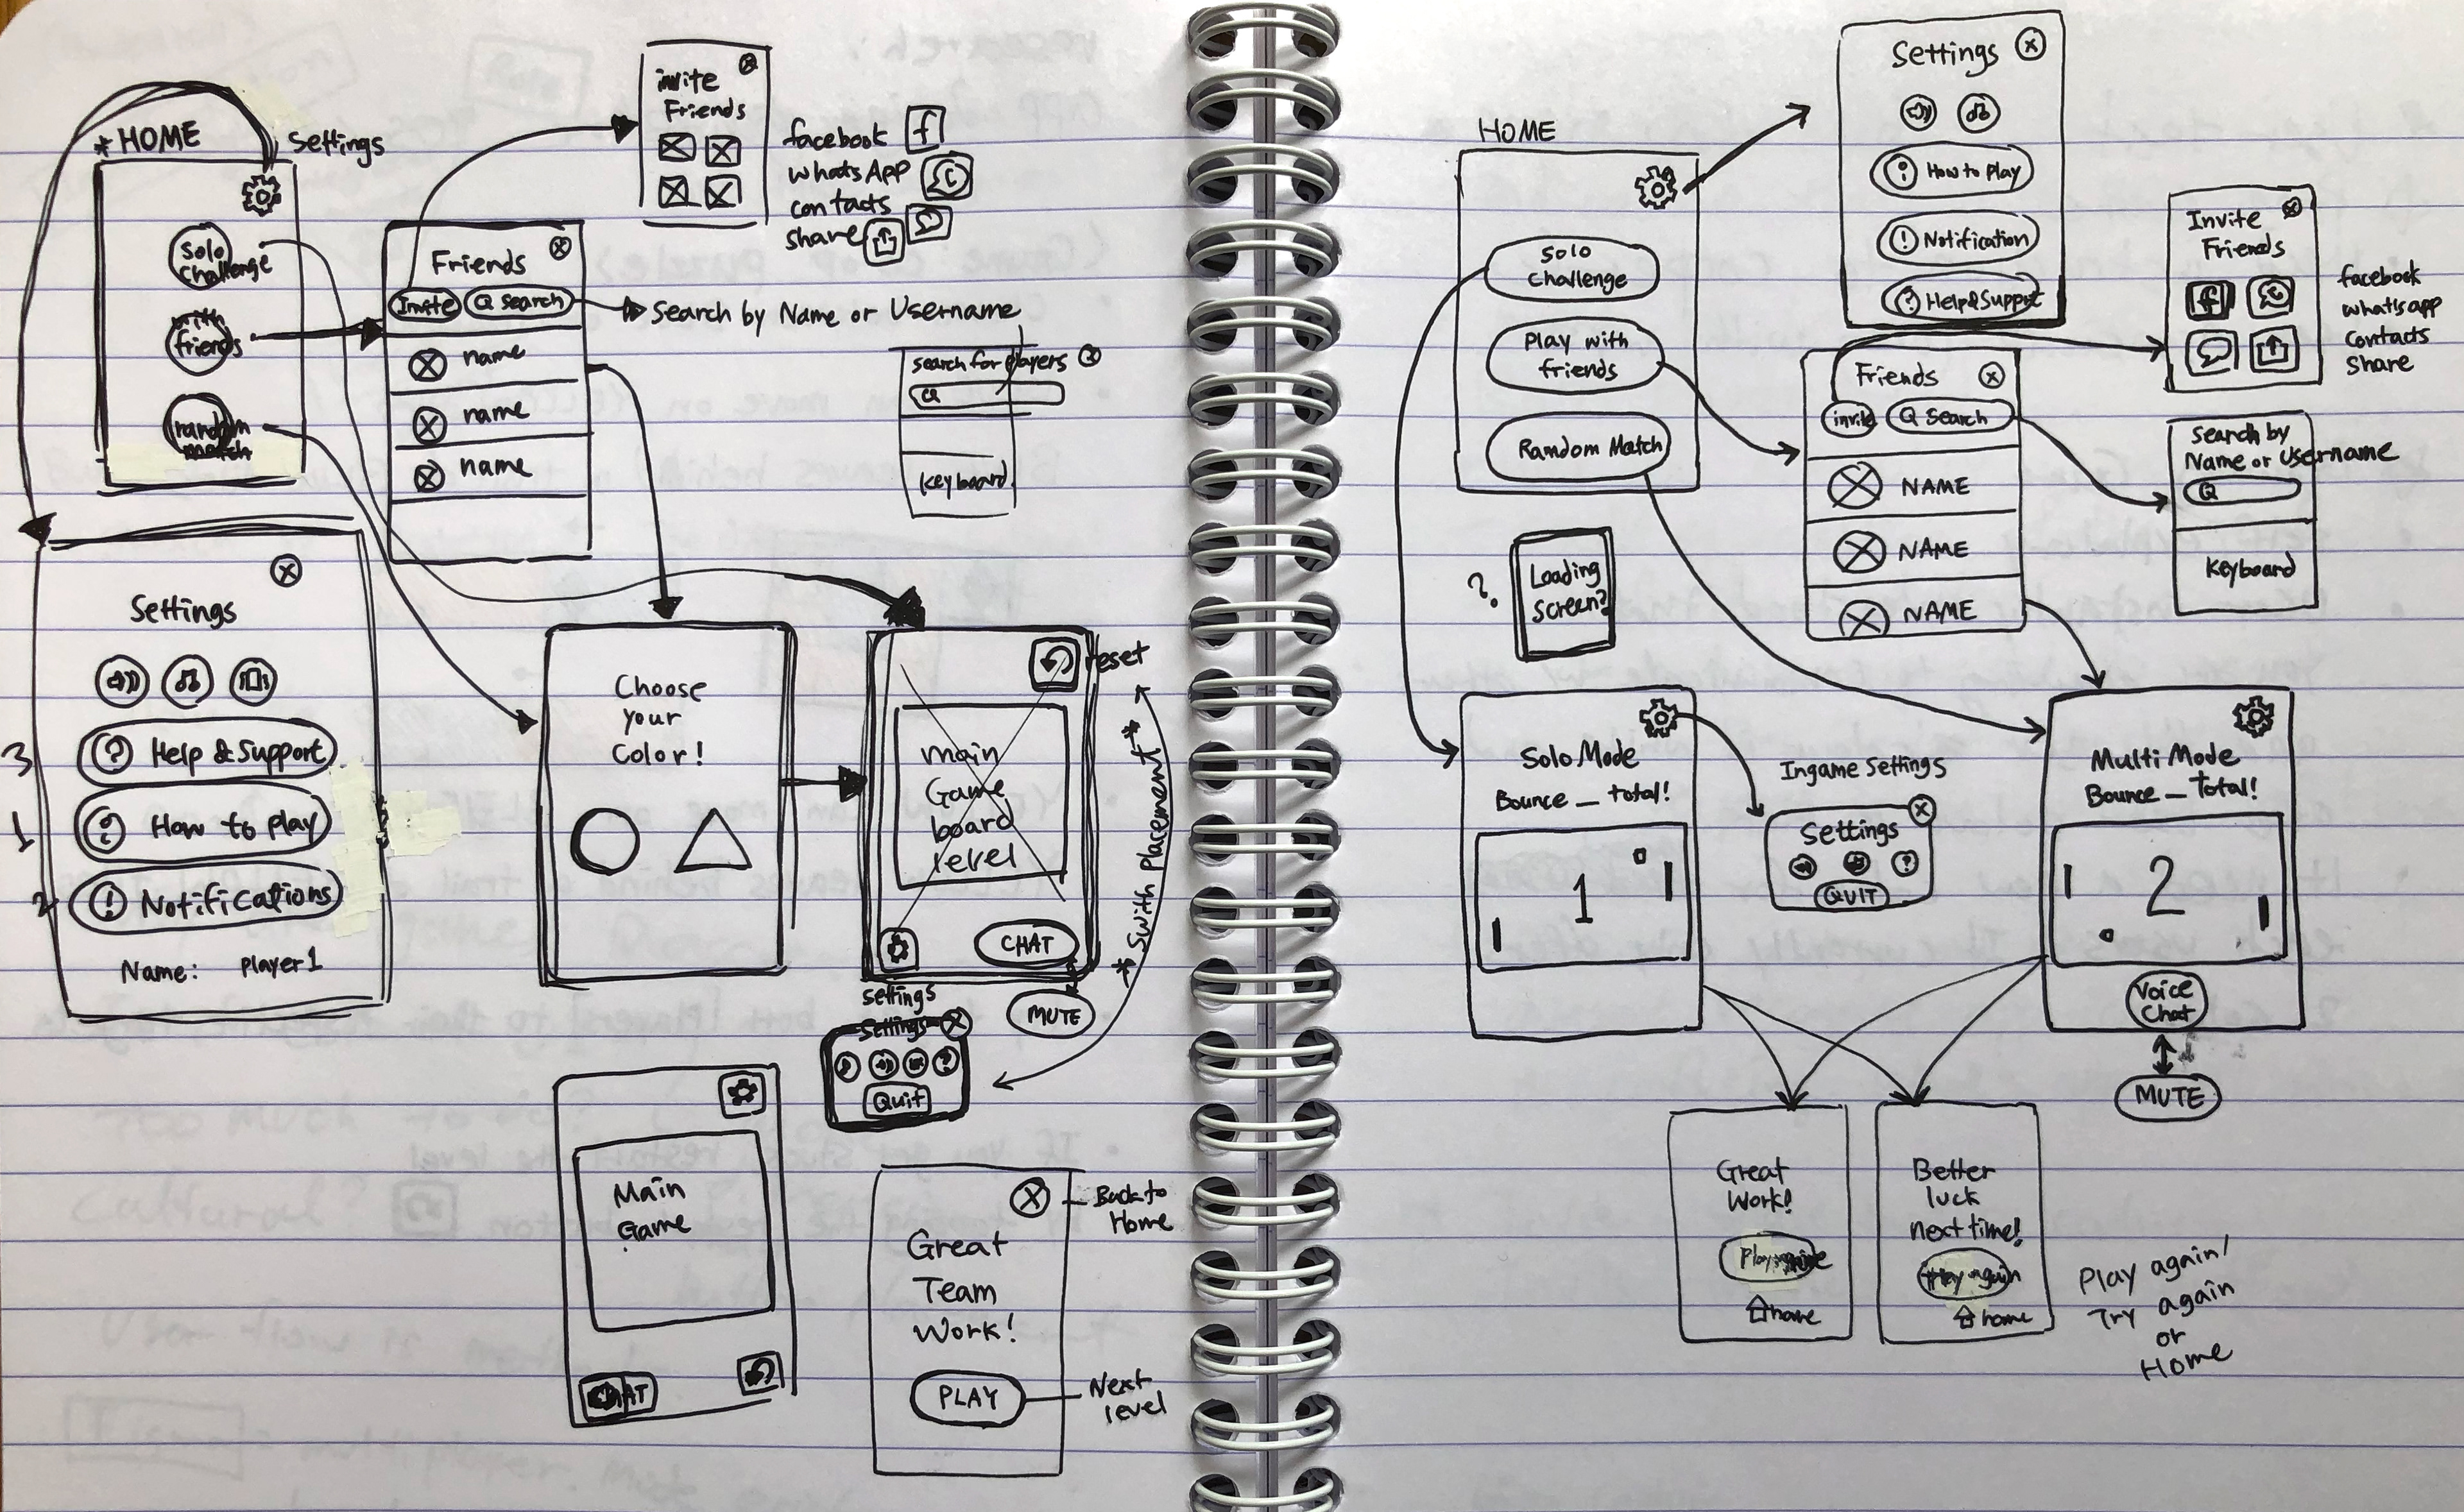 *HOME
Settings
Solo
Challenge
with
friends
random
match
invite
Friends
facebook
whatsApp
contacts
share
Friends
Invite
Search
name
name
name
Search by Name or Username
search for players
keyboard
Settings
3
Help & Support
1
How to play
2
Notifications
Name: Player1
Choose
your
Color!
reset
main
Game
board
level
CHAT
settings
MUTE
*Swith Placement*
Settings
Quit
Main
Game
CHAT
Back to
Home
Great
Team
Work!
PLAY
Next
level
HOME
Solo
Challenge
Play with
friends
Random Match
Settings
How to play
Notification
Help&Support
Invite
Friends
facebook
whatsapp
Contacts
Share
Friends
invite
Search
NAME
NAME
NAME
Search by
Name or Username
Keyboard
?
Loading
Screen?
Solo Mode
Bounce _ total!
1
Ingame Settings
Settings
QUIT
Multi Mode
Bounce _ Total!
2
Voice
Chat
MUTE
Great
Work!
home
Better
luck
next time!
Play again
home
Play again/
Try again
or
Home